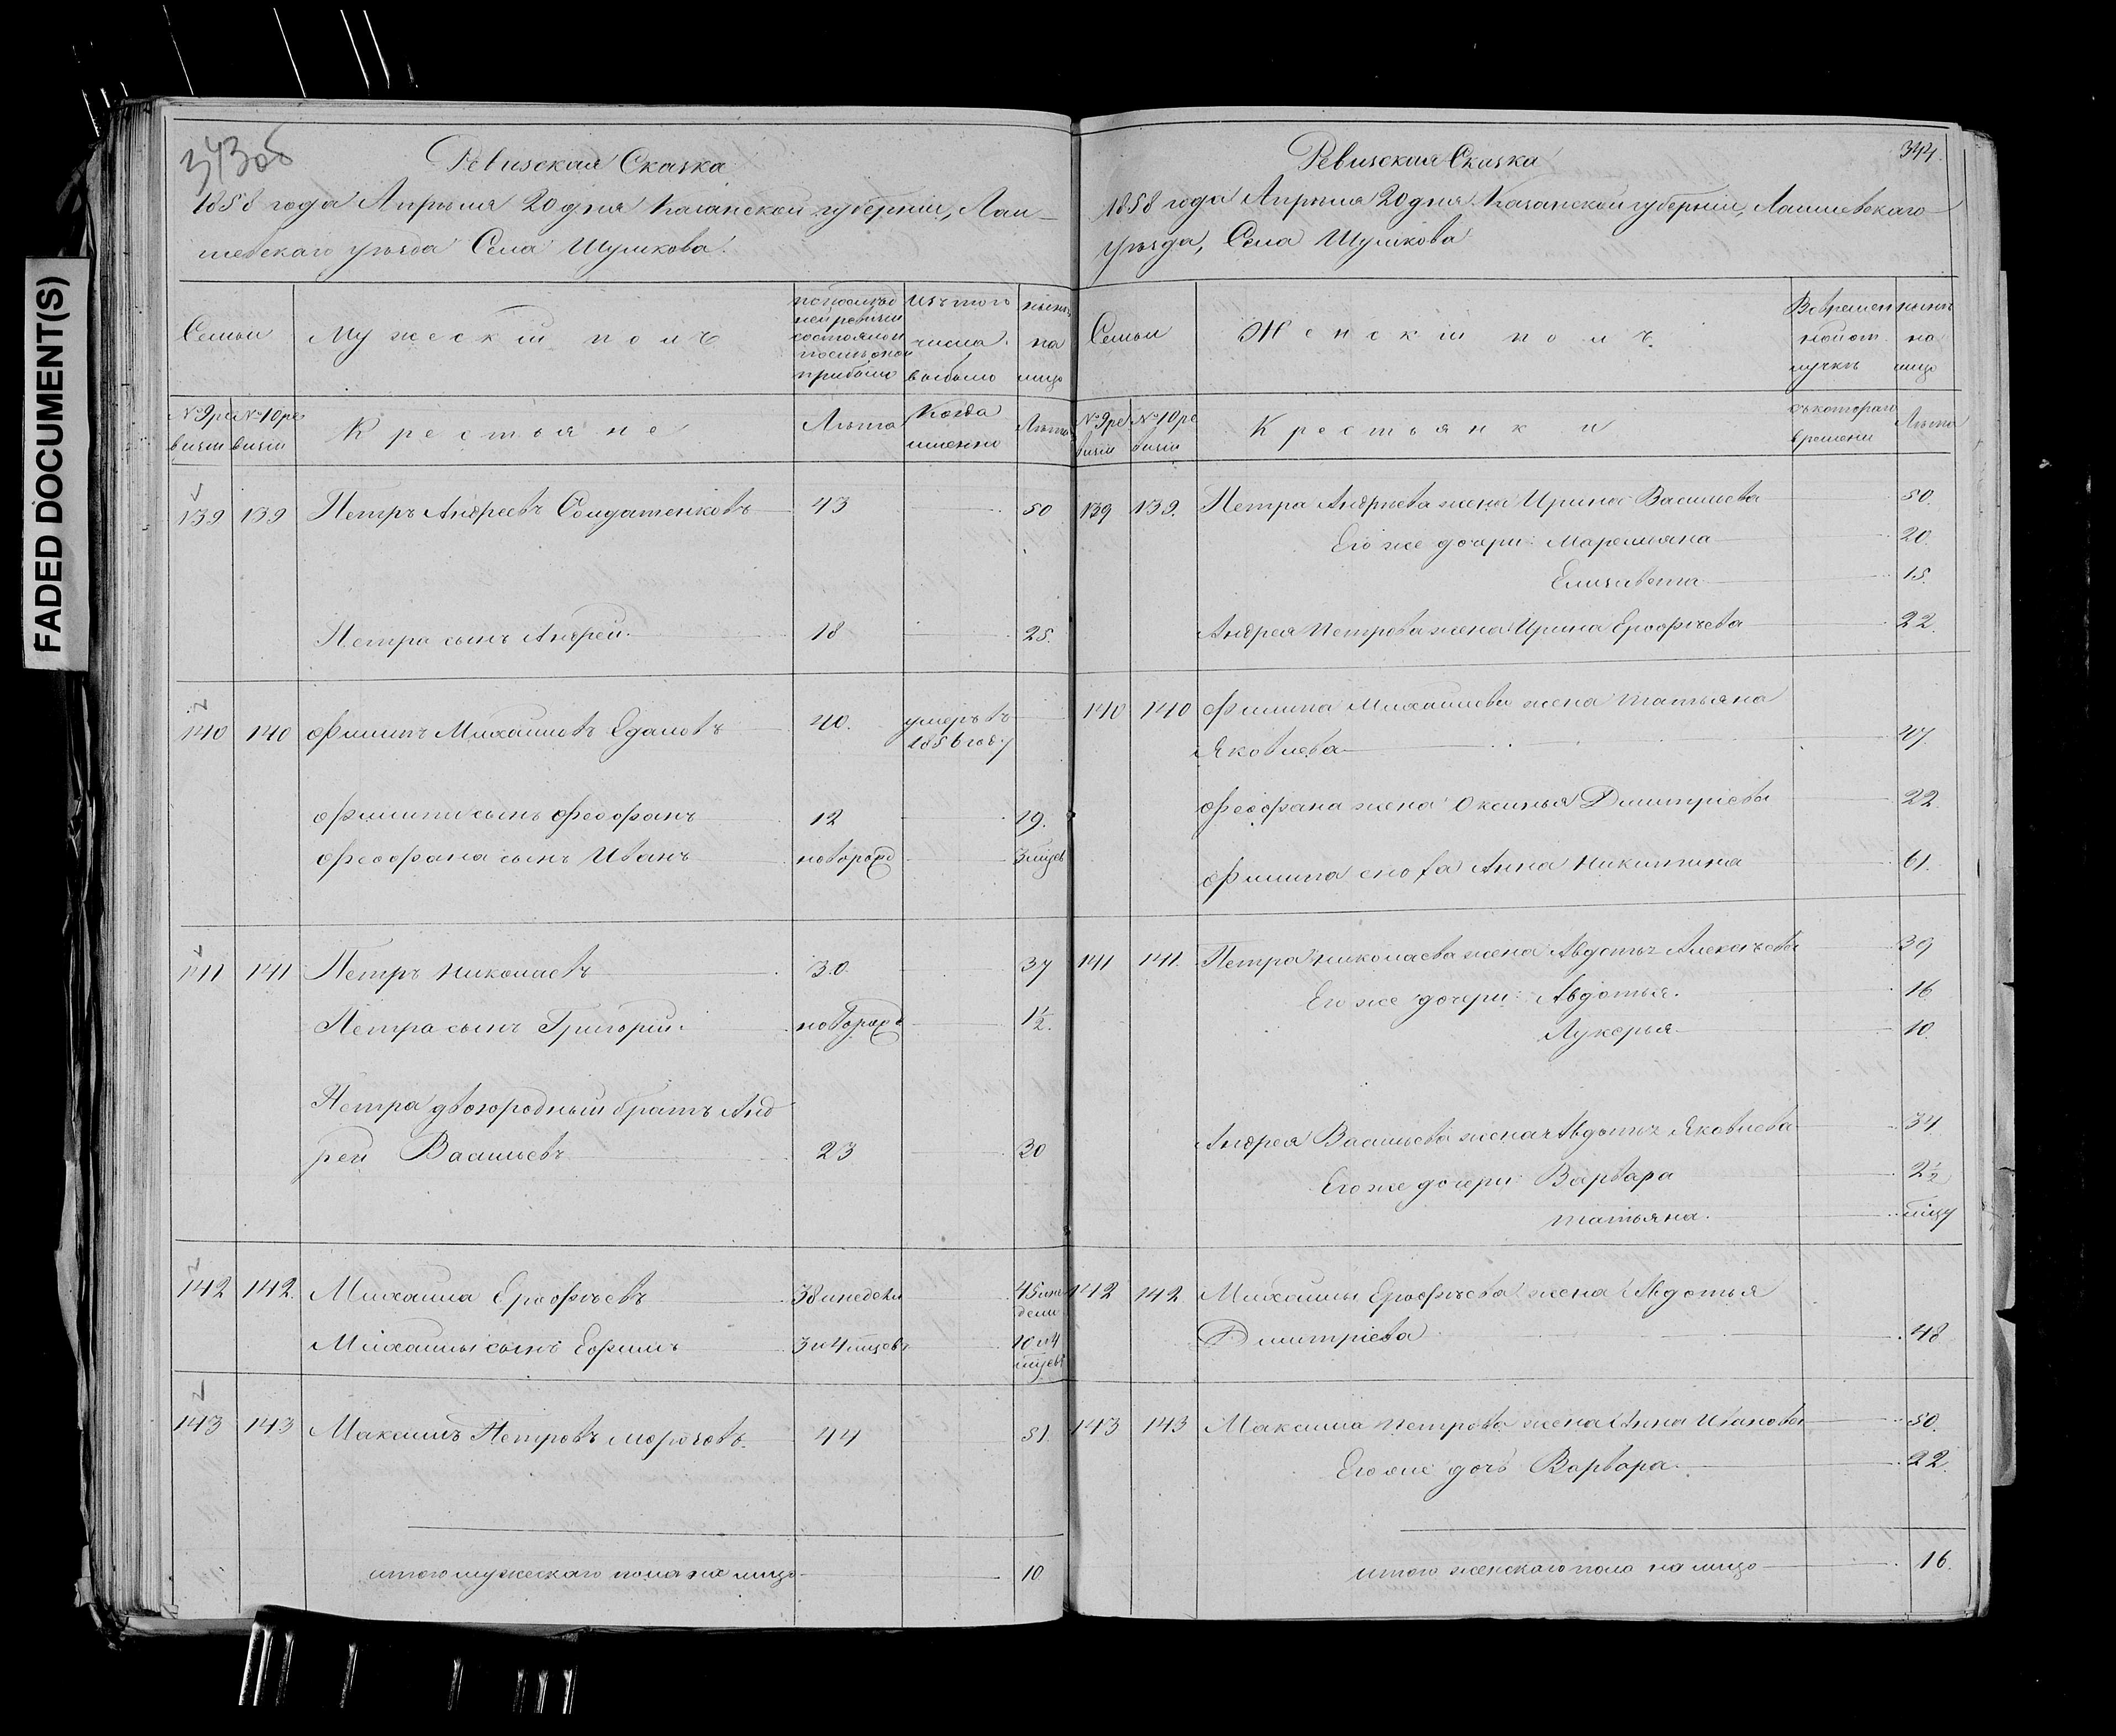 FADED DOCUMENT(S)
343об
Ревизская Сказка
1858 года Апреля 20 дня Казанской губерніи, Лаи-
шевскаго уѣзда Села Шумкова.
Семьи
Мужескій полъ
по послѣд
ней ревизіи
состояло и
послѣ оной
прибыло
Изъ того
числа
выбыло
нынѣ
на
лицо
№ 9 ре
визіи
№ 10 ре
визіи
Крестьяне
Лѣта
Когда
именно
Лѣта
139 139 Петръ Андреевъ Солдатенковъ 43 50
Петра сынъ Андрей 18 25.
140 140 Филипъ Михаиловъ Едаловъ 40. умеръ въ
1856 году
Филипа сынъ Феофанъ 12 19.
Феофана сынъ Иванъ новорожд 3 мцев
141 141 Петръ Николаевъ 30. 37
Петра сынъ Григорій. новорожд 1½.
Петра двоюродный братъ Анд
рей Васильевъ 23 30
142 142. Михаила Ерофѣевъ 38 и недели 45 и не
дели
Михаилы сынъ Ефимъ 3 и 4 мцевъ 10 и 4
мцевъ
143 143 Максимъ Петровъ 44 51.
итого мужескаго пола на лицо 10
344.
Ревизская Сказка
1858 года Апреля 20 дня Казанской губерніи, Лаишевскаго
уѣзда, Села Шумкова
Семьи
Женскій полъ.
Во времен
ной от
лучкѣ
нынѣ
на
лицо
№ 9 ре
визіи
№ 10 ре
визіи
Крестьянки
съ котораго
времени
Лѣта
139 139. Петра Андрѣева жена Ирина Васильева 50.
Его же дочери: Маремьяна 20.
Елизавета 15.
Андрея Петрова жена Ирина Ерофѣева 22.
140 140 Филипа Михаилова жена Татьяна
Яковлева 47.
Феофана жена Оксинья Дмитріева 22.
Филипа сноха Анна Никитина 61.
141 141. Петра Николаева жена Авдотья Алексѣева 39
Его же дочери: Авдотья. 16
Лукерья 10.
Андрея Васильева жена Авдотья Яковлева 34
Его же дочери: Варвара 2½
Татьяна. мцу
142 142 Михаилы Ерофѣева жена Авдотья
Дмитріева 48
143 143 Максима Петрова жена Анна Иванова 50.
Его же дочь Варвара. 22.
итого женскаго пола на лицо 16.